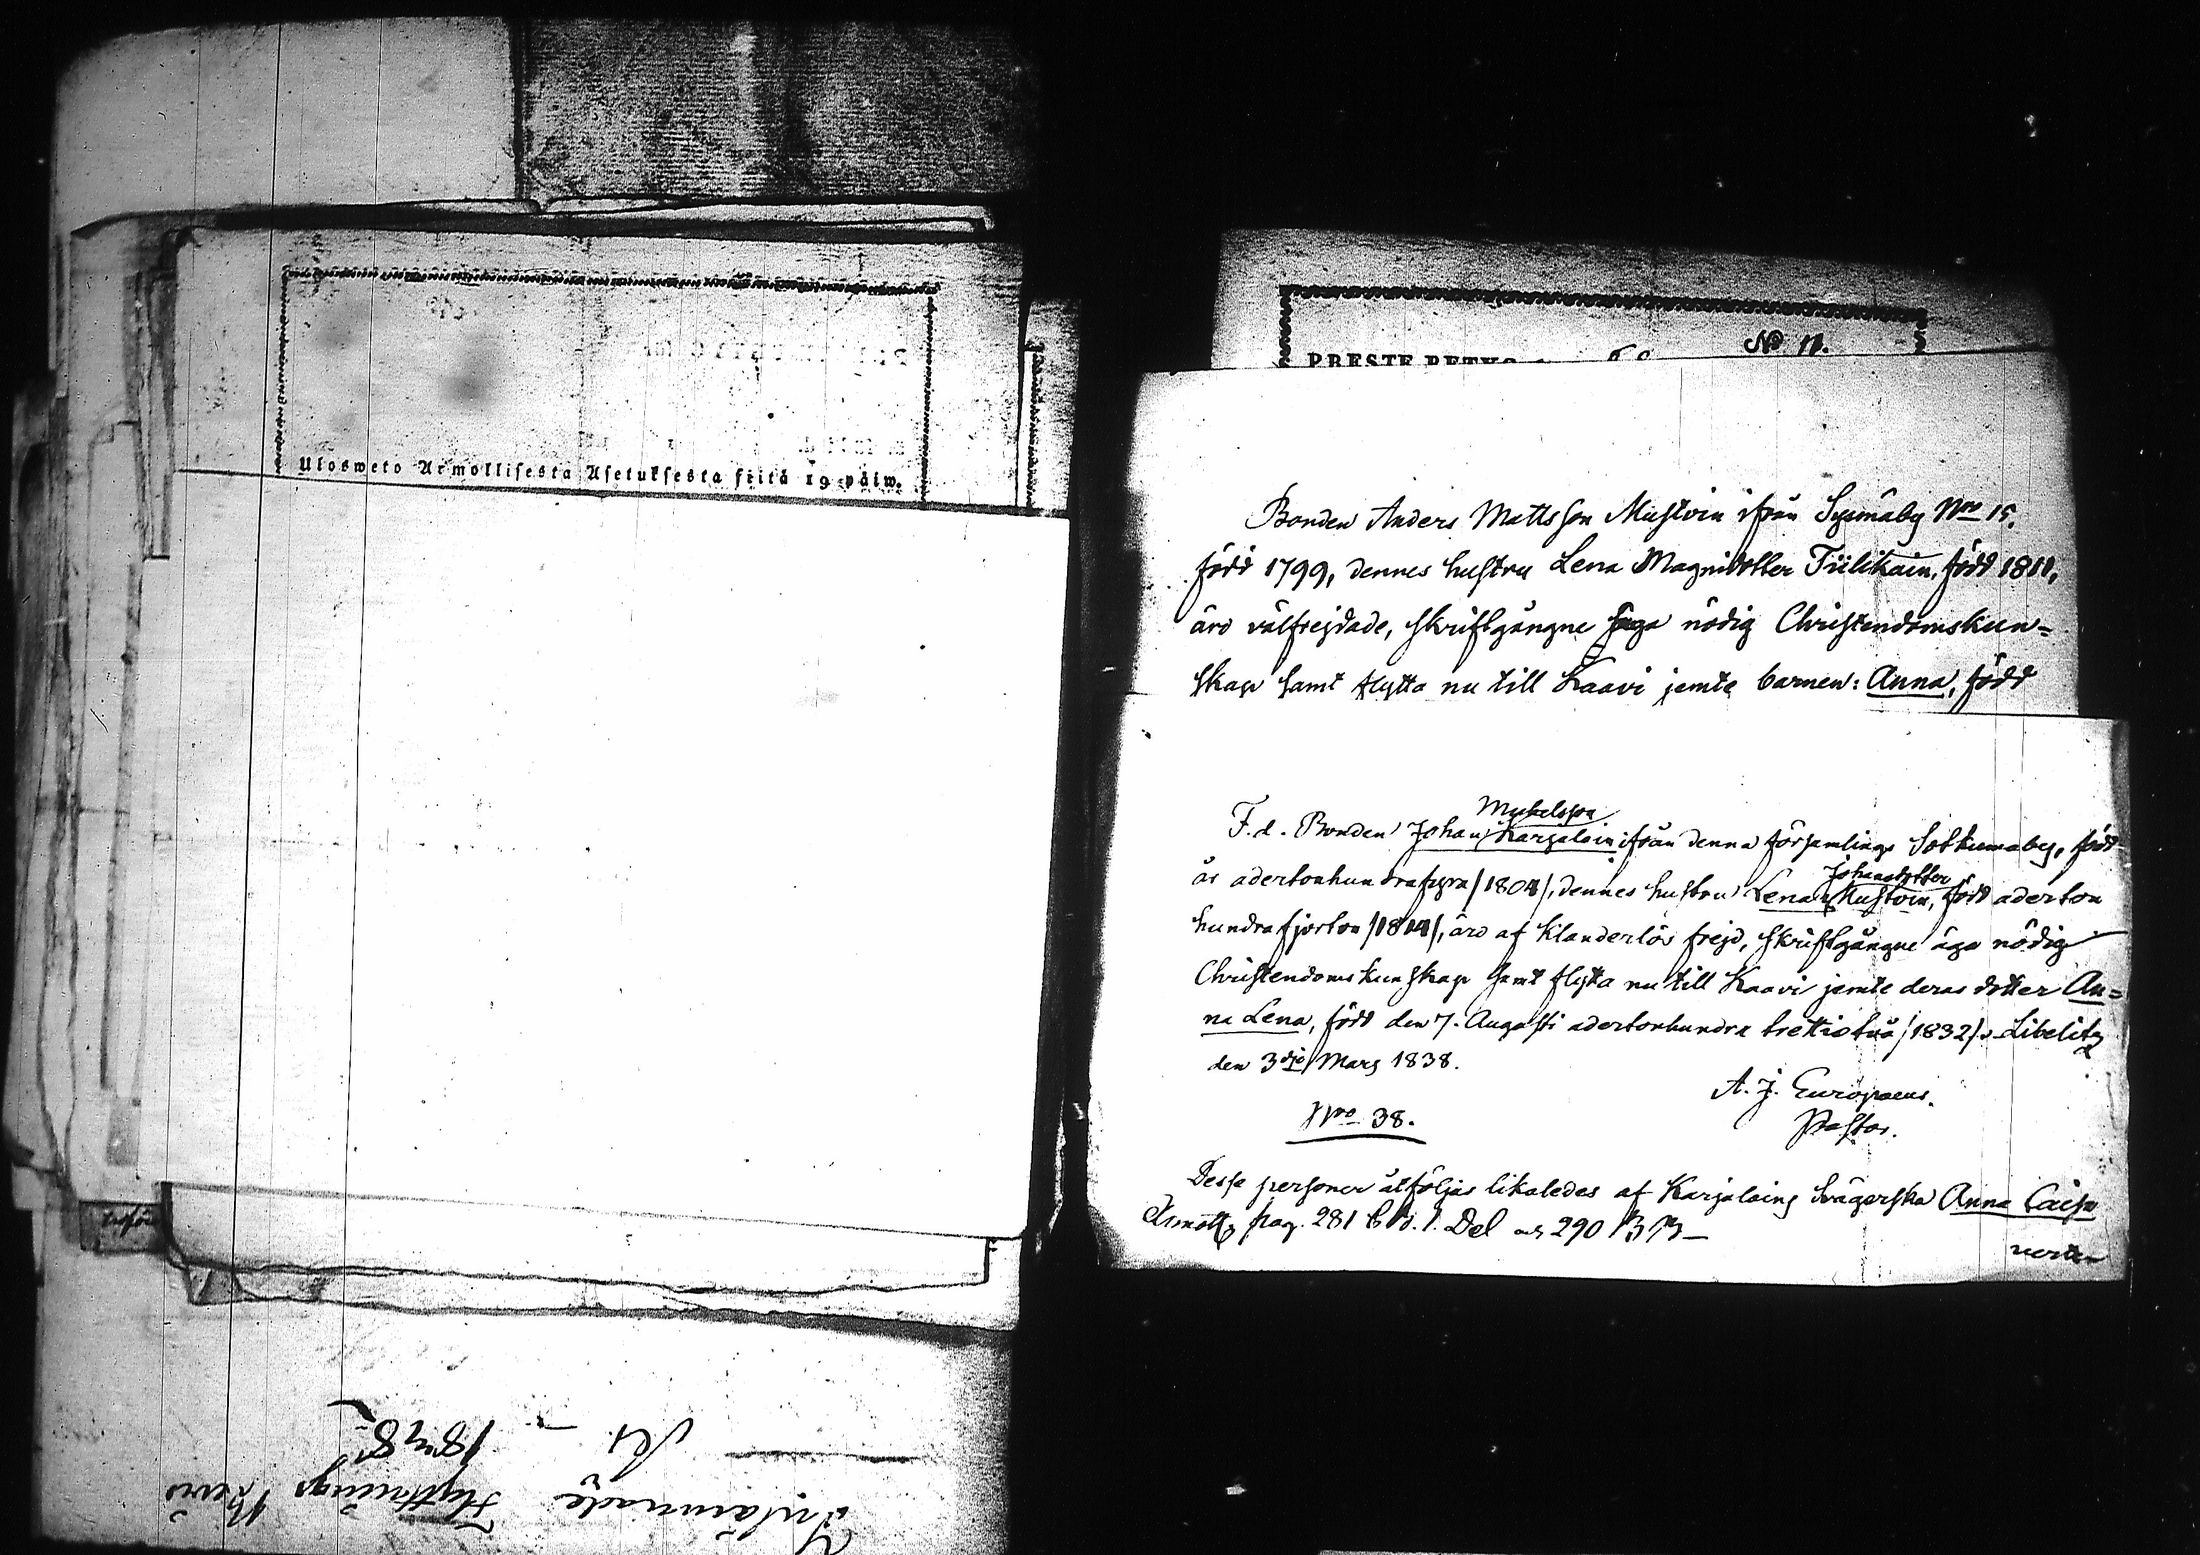 Ulosweto Armollisesta Asetuksesta siitä 19 päiw.
Inlämnade Flyttnings
1848
No 11.
PRESTE BETYG
Bonden Anders Mattsson Mustoin ifrån Sysmäby Nro 15.
född 1799, dennes hustru Lena Magnidotter Tiilikain, född 1811,
äro välfrejdade, skriftgångne äga nödig Christendomskun=
skap samt flytta nu till Kaavi jemte barnen: Anna, född
Mickelsson
F.d. Bonden Johan Karjalain ifrån denna församlings Sotkumaby, född
Johansdotter
år adertonhundrafyra /1804/, dennes hustru Lena Mustoin, född aderton
hundrafjorton /1814/, äro af klanderlös frejd, skriftgångne äga nödig
Christendomskunskap samt flytta nu till Kaavi jemte deras dotter An=
na Lena, född den 7. Augusti adertonhundra trettiotvå /1832/. Libelitz
den 3dje Mars 1838.
A. J. Europaeus.
Pastor.
Nro 38.
Desse personer åtföljas likaledes af Karjalains Svägerska Anna Caisa
pag. 281 1. Del 290